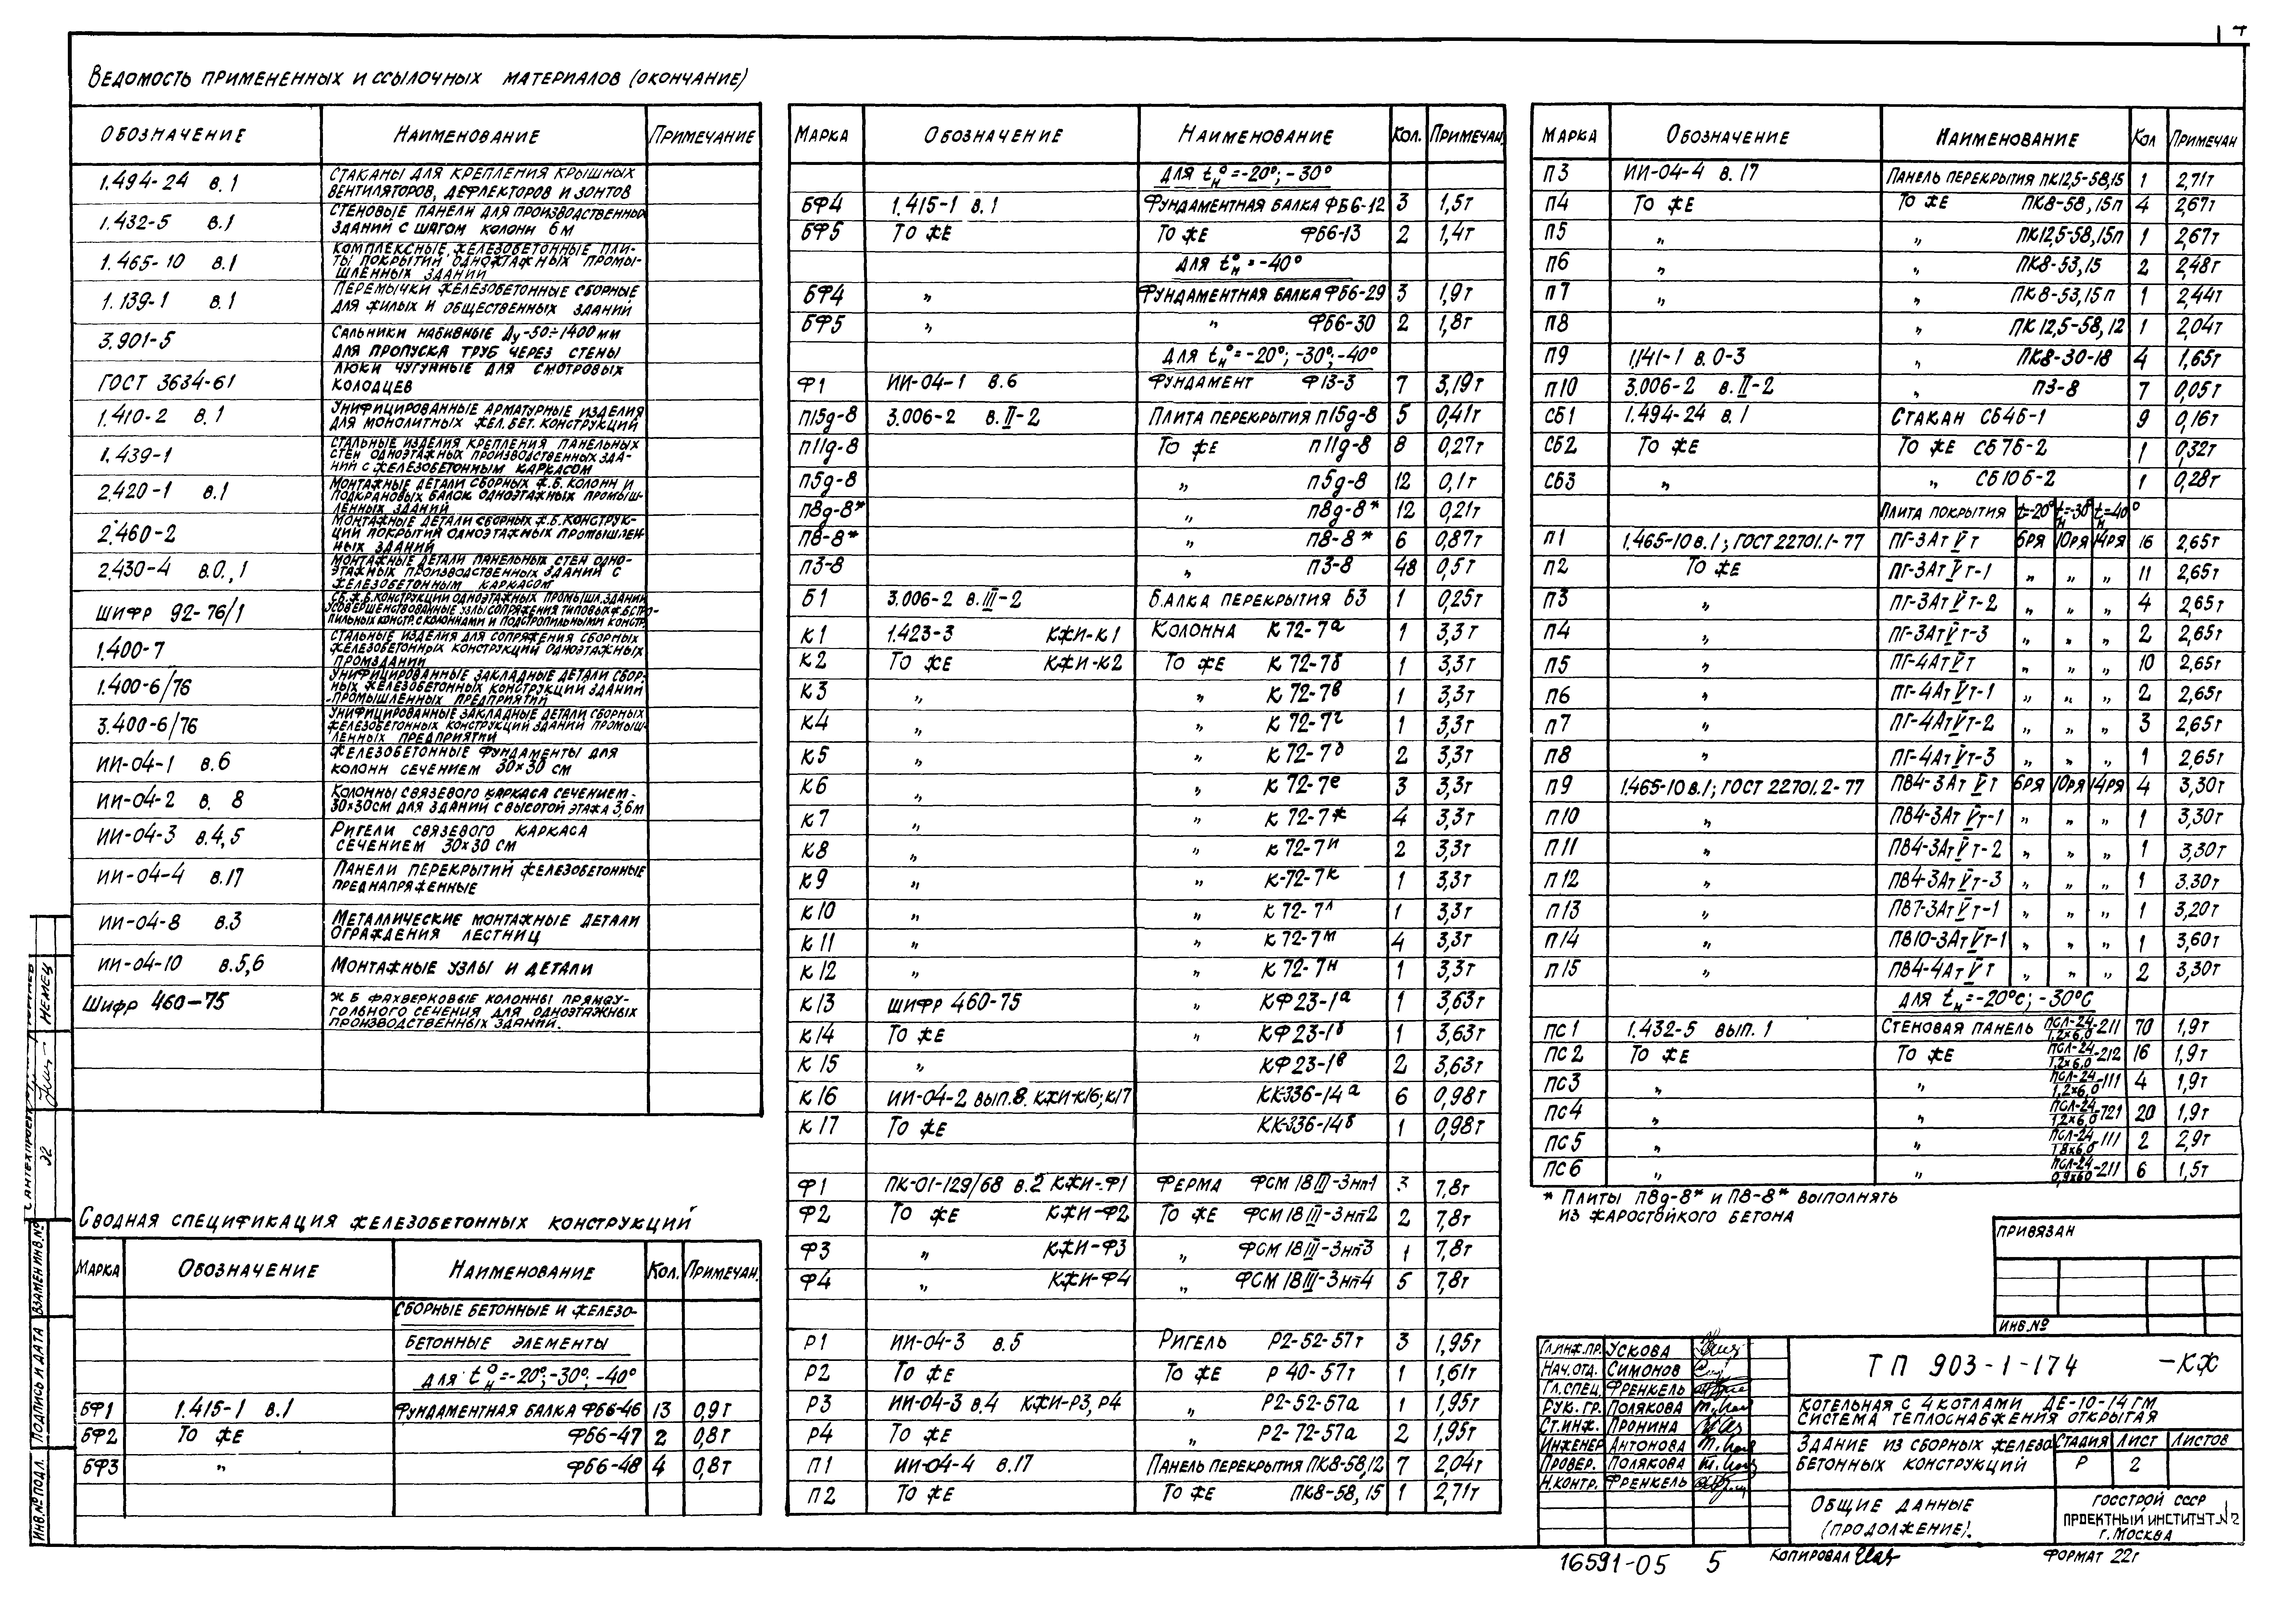 Ведомость примененных и ссылочных материалов (окончание)
Обозначение | Наименование | Примечание
1.494-24 в.1 | Стаканы для крепления крышных
вентиляторов, дефлекторов и зонтов
1.432-5 в.1 | Стеновые панели для производственных
зданий с шагом колонн 6 м
1.465-10 в.1 | Комплексные железобетонные пли-
ты покрытий одноэтажных промы-
шленных зданий
1.139-1 в.1 | Перемычки железобетонные сборные
для жилых и общественных зданий
3.901-5 | Сальники набивные Ду-50÷1400 мм
для пропуска труб через стены
ГОСТ 3634-61 | Люки чугунные для смотровых
колодцев
1.410-2 в.1 | Унифицированные арматурные изделия
для монолитных жел.бет. конструкций
1.439-1 | Стальные изделия крепления панельных
стен одноэтажных производственных зда-
ний с железобетонным каркасом
2.420-1 в.1 | Монтажные детали сборных ж.б. колонн и
подкрановых балок одноэтажных промыш-
ленных зданий
2.460-2 | Монтажные детали сборных ж.б. конструк-
ций покрытий одноэтажных промышлен-
ных зданий
2.430-4 в.0,1 | Монтажные детали панельных стен одно-
этажных производственных зданий с
железобетонным каркасом
шифр 92-76/1 | Сб.ж.б. конструкции одноэтажных промышл. зданий
Усовершенствованные узлы сопряжения типовых ж.б. стро-
пильных констр. с колоннами и подстропильными констр.
1.400-7 | Стальные изделия для сопряжения сборных
железобетонных конструкций одноэтажных
промзданий
1.400-6/76 | Унифицированные закладные детали сбор-
ных железобетонных конструкций зданий
промышленных предприятий
3.400-6/76 | Унифицированные закладные детали сборных
железобетонных конструкций зданий промыш-
ленных предприятий
ИИ-04-1 в.6 | Железобетонные фундаменты для
колонн сечением 30×30 см
ИИ-04-2 в. 8 | Колонны связевого каркаса сечением-
30×30см для зданий с высотой этажа 3,6м
ИИ-04-3 в.4,5 | Ригели связевого каркаса
сечением 30×30 см
ИИ-04-4 в.17 | Панели перекрытий железобетонные
преднапряженные
ИИ-04-8 в.3 | Металлические монтажные детали
ограждения лестниц
ИИ-04-10 в.5,6 | Монтажные узлы и детали
Шифр 460-75 | Ж Б фахверковые колонны прямоу-
гольного сечения для одноэтажных
производственных зданий.
Сводная спецификация железобетонных конструкций
Марка | Обозначение | Наименование | Кол. | Примечан.
Сборные бетонные и железо-
бетонные элементы
для tн°=-20°,-30°, -40°
БФ1 | 1.415-1 в.1 | Фундаментная балка ФБ6-46 | 13 | 0,9т
БФ2 | То же | ФБ6-47 | 2 | 0,8т
БФ3 | " | ФБ6-48 | 4 | 0,8т
Марка | Обозначение | Наименование | Кол. | Примечан.
для tн°=-20°; -30°
БФ4 | 1.415-1 в.1 | Фундаментная балка ФБ6-12 | 3 | 1,5т
БФ5 | То же | То же ФБ6-13 | 2 | 1,4т
для tн°=-40°
БФ4 | " | Фундаментная балка ФБ6-29 | 3 | 1,9т
БФ5 | " | " ФБ6-30 | 2 | 1,8т
для tн°=-20°; -30°; -40°
Ф1 | ИИ-04-1 в.6 | Фундамент Ф13-3 | 7 | 3,19т
П15д-8 | 3.006-2 в.II-2 | Плита перекрытия П15д-8 | 5 | 0,41т
П11д-8 | То же П11д-8 | 8 | 0,27т
П5д-8 | " П5д-8 | 12 | 0,1т
П8д-8* | " П8д-8* | 12 | 0,21т
П8-8* | " П8-8* | 6 | 0,87т
П3-8 | " П3-8 | 48 | 0,5т
Б1 | 3.006-2 в.III-2 | Балка перекрытия Б3 | 1 | 0,25т
К1 | 1.423-3 КЖИ-К1 | Колонна К72-7а | 1 | 3,3т
К2 | То же КЖИ-К2 | То же К72-7б | 1 | 3,3т
К3 | " | " К72-7в | 1 | 3,3т
К4 | " | " К72-7г | 1 | 3,3т
К5 | " | " К72-7д | 2 | 3,3т
К6 | " | " К72-7е | 3 | 3,3т
К7 | " | " К72-7ж | 4 | 3,3т
К8 | " | " К72-7и | 2 | 3,3т
К9 | " | " К-72-7к | 1 | 3,3т
К10 | " | " К72-7л | 1 | 3,3т
К11 | " | " К72-7м | 4 | 3,3т
К12 | " | " К72-7н | 1 | 3,3т
К13 | шифр 460-75 | " КФ23-1а | 1 | 3,63т
К14 | То же | " КФ23-1б | 1 | 3,63т
К15 | " | КФ23-1в | 2 | 3,63т
К16 | ИИ-04-2 вып.8. КЖИ-К16;К17 | КК-336-14а | 6 | 0,98т
К17 | То же | КК-336-14б | 1 | 0,98т
Ф1 | ПК-01-129/68 в.2 КЖИ-Ф1 | Ферма ФСМ 18III-3нп1 | 3 | 7,8т
Ф2 | То же КЖИ-Ф2 | То же ФСМ 18III-3нп2 | 2 | 7,8т
Ф3 | " КЖИ-Ф3 | " ФСМ 18III-3нп3 | 1 | 7,8т
Ф4 | " КЖИ-Ф4 | " ФСМ 18III-3нп4 | 5 | 7,8т
Р1 | ИИ-04-3 в.5 | Ригель Р2-52-57т | 3 | 1,95т
Р2 | То же | То же Р 40-57т | 1 | 1,61т
Р3 | ИИ-04-3 в.4 КЖИ-Р3, Р4 | " Р2-52-57а | 1 | 1,95т
Р4 | То же | " Р2-72-57а | 2 | 1,95т
П1 | ИИ-04-4 в.17 | Панель перекрытия ПК8-58,12 | 7 | 2,04т
П2 | То же | То же ПК8-58,15 | 1 | 2,71т
Марка | Обозначение | Наименование | Кол | Примечан
П3 | ИИ-04-4 в.17 | Панель перекрытия ПК12,5-58,15 | 1 | 2,71т
П4 | То же | То же ПК8-58,15п | 4 | 2,67т
П5 | " | " ПК12,5-58,15п | 1 | 2,67т
П6 | " | " ПК8-53,15 | 2 | 2,48т
П7 | " | " ПК8-53,15п | 1 | 2,44т
П8 | " ПК12,5-58,12 | 1 | 2,04т
П9 | 1.141-1 в.0-3 | " ПК8-30-18 | 4 | 1,65т
П10 | 3.006-2 в.II-2 | " П3-8 | 7 | 0,05т
СБ1 | 1.494-24 в.1 | Стакан СБ4Б-1 | 9 | 0,16т
СБ2 | То же | То же СБ7Б-2 | 1 | 0,32т
СБ3 | " | " СБ10Б-2 | 1 | 0,28т
Плита покрытия | t=-20° | tн=-30° | tн=-40°
П1 | 1.465-10 в.1; ГОСТ 22701.1-77 | ПГ-3АтVт | 6РЯ | 10РЯ | 14РЯ | 16 | 2,65т
П2 | То же | ПГ-3АтVт-1 | " | " | " | 11 | 2,65т
П3 | " | ПГ-3АтVт-2 | " | " | " | 4 | 2,65т
П4 | " | ПГ-3АтVт-3 | " | " | " | 2 | 2,65т
П5 | " | ПГ-4АтVт | " | " | " | 10 | 2,65т
П6 | " | ПГ-4АтVт-1 | " | " | " | 2 | 2,65т
П7 | " | ПГ-4АтVт-2 | " | " | " | 3 | 2,65т
П8 | " | ПГ-4АтVт-3 | " | " | " | 1 | 2,65т
П9 | 1.465-10 в.1; ГОСТ 22701.2-77 | ПВ4-3АтVт | 6РЯ | 10РЯ | 14РЯ | 4 | 3,30т
П10 | " | ПВ4-3АтVт-1 | " | " | " | 1 | 3,30т
П11 | " | ПВ4-3АтVт-2 | " | " | " | 1 | 3,30т
П12 | " | ПВ4-3АтVт-3 | " | " | " | 1 | 3.30т
П13 | " | ПВ7-3АтVт-1 | " | " | " | 1 | 3,20т
П14 | " | ПВ10-3АтVт-1 | " | " | " | 1 | 3,60т
П15 | " | ПВ4-4АтVт | " | " | " | 2 | 3,30т
для tн=-20°С; -30°С
ПС1 | 1.432-5 вып. 1 | Стеновая панель ПСЛ-24/1,2×6,0-211 | 70 | 1,9т
ПС2 | То же | То же ПСЛ-24/1,2×6,0-212 | 16 | 1,9т
ПС3 | " | " ПСЛ-24/1,2×6,0-111 | 4 | 1,9т
ПС4 | " | " ПСЛ-24/1,2×6,0-721 | 20 | 1,9т
ПС5 | " | " ПСЛ-24/1,8×6,0-111 | 2 | 2,9т
ПС6 | " | " ПСЛ-24/0,9×6,0-211 | 6 | 1,5т
* Плиты П8д-8* и П8-8* выполнять
из жаростойкого бетона
Привязан
Инв.№
Гл.инж.пр. Ускова
Нач.отд. Симонов
Гл.спец. Френкель
Рук.гр. Полякова
Ст.инж. Пронина
Инженер Антонова
Провер. Полякова
Н.контр. Френкель
ТП 903-1-174 -КЖ
Котельная с 4 котлами ДЕ-10-14ГМ
Система теплоснабжения открытая
Здание из сборных железо
бетонных конструкций
Стадия | Лист | Листов
Р | 2
Общие данные
(продолжение).
Госстрой СССР
Проектный институт №2
г. Москва
16591-05 5
Копировал
Формат 22г
Инв.№ подл. | Подпись и дата | Взамен инв.№
Немец